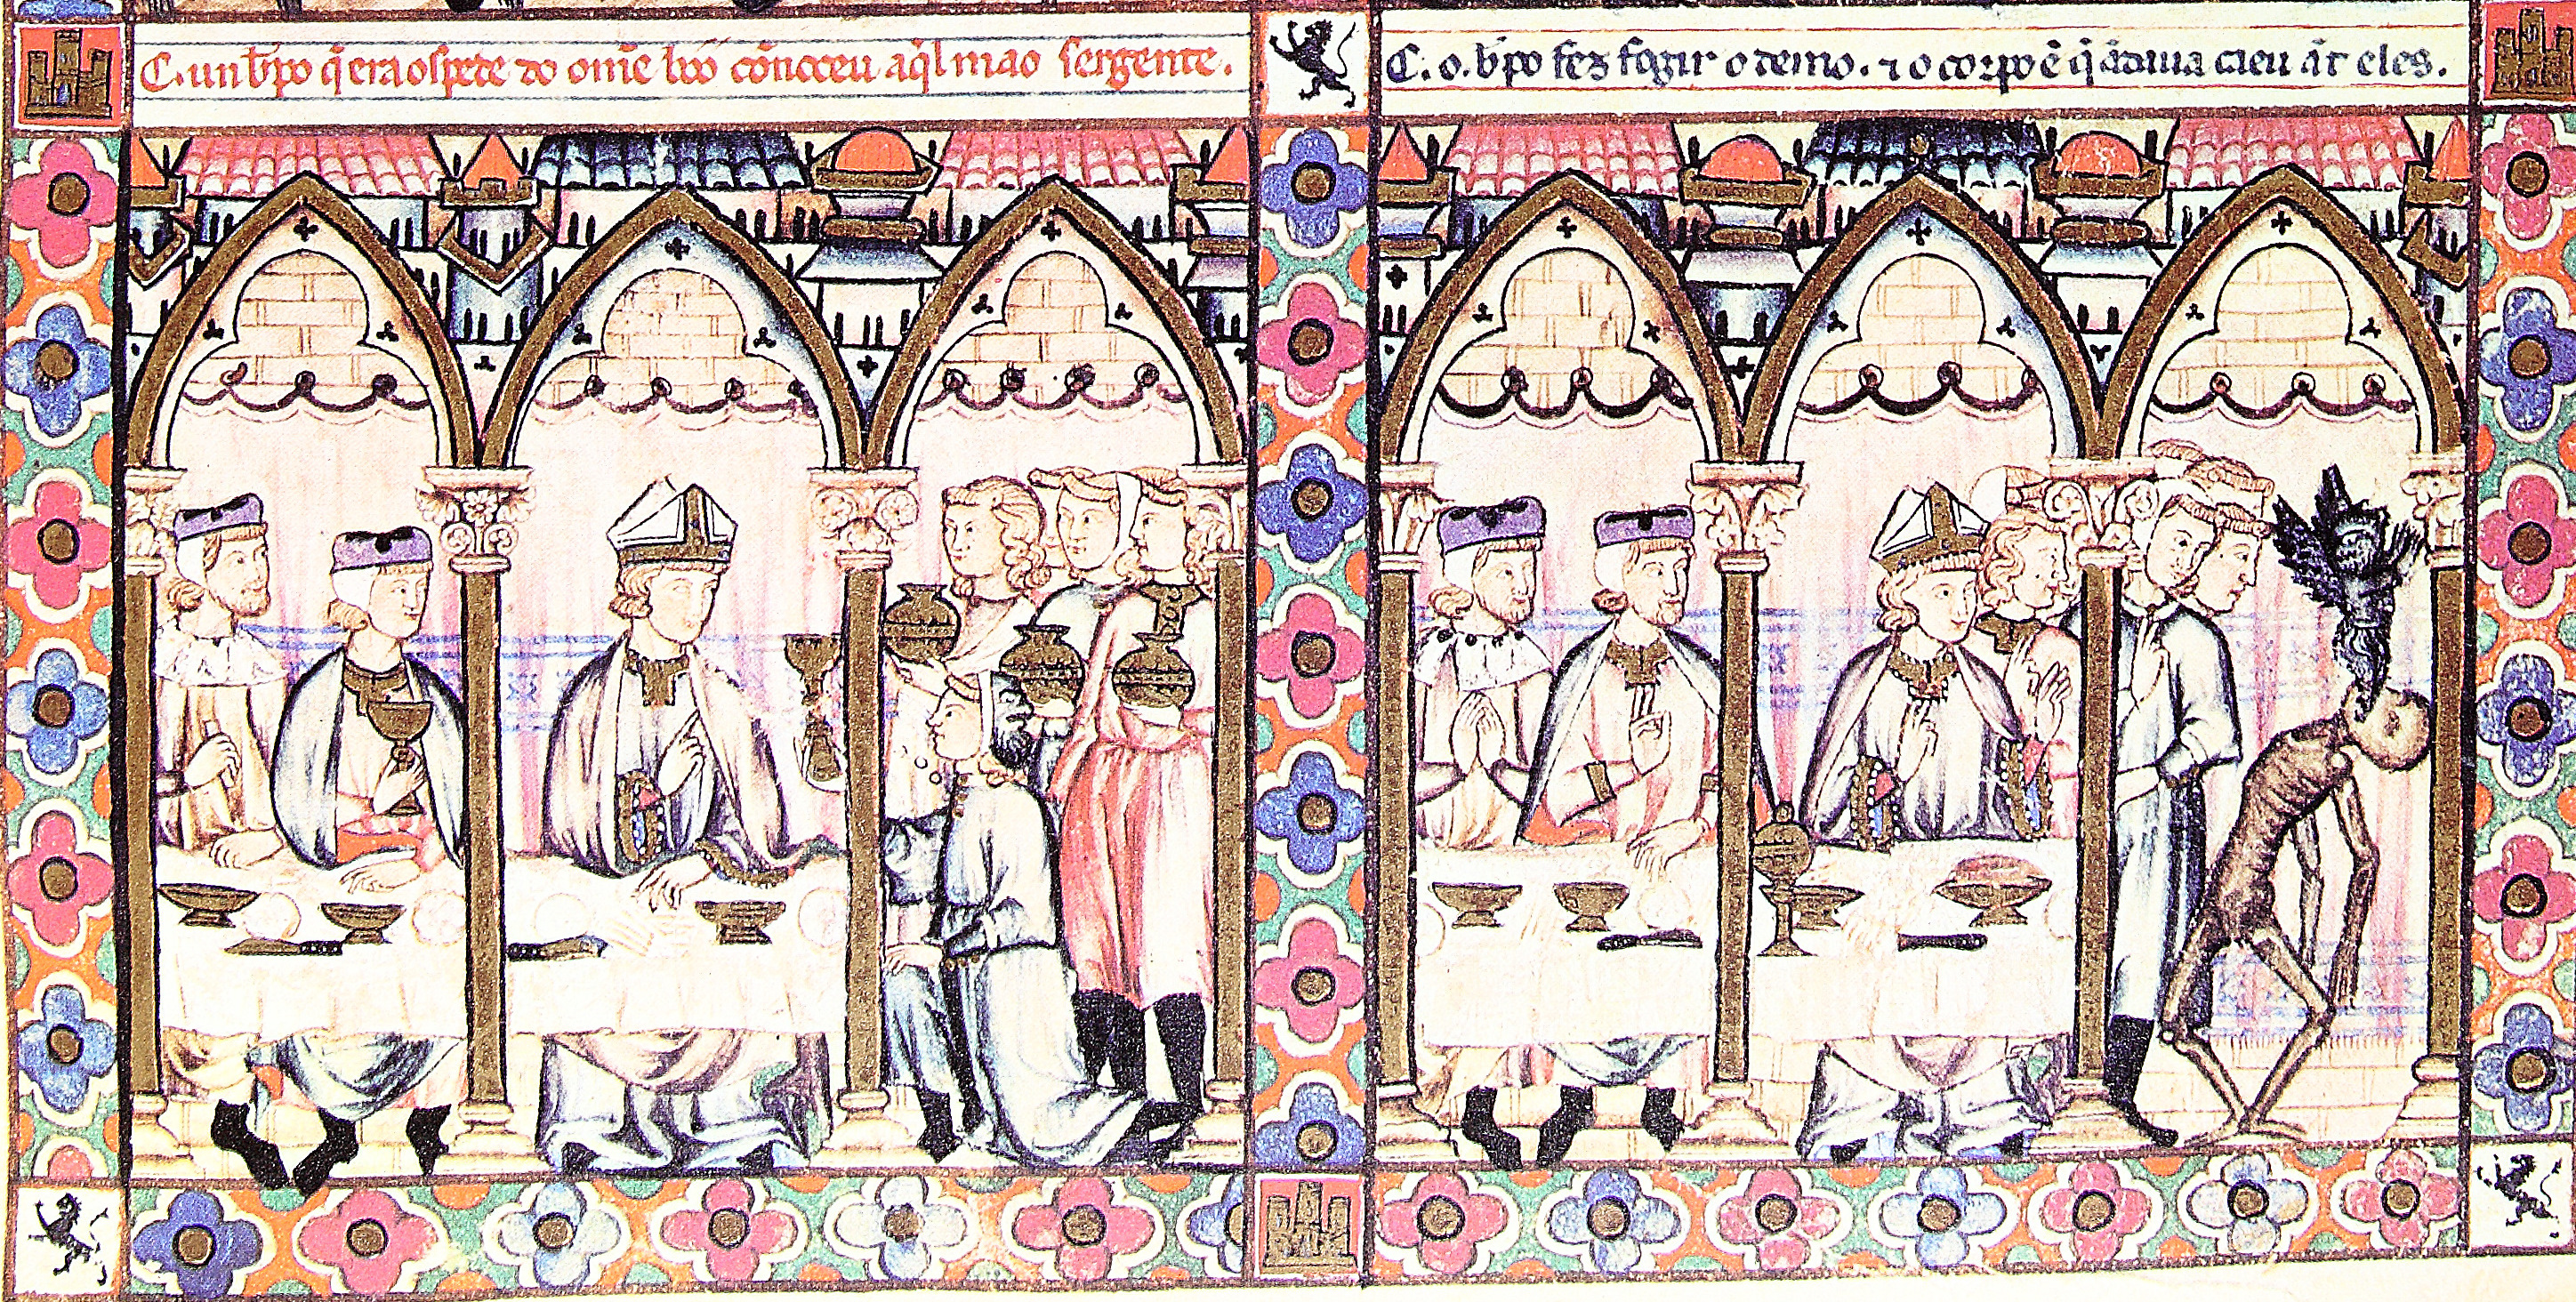 C. un b̄po q̄ era ospede do om̄e bõo cõnoceu aq̄l mao sergente.
C. o. b̄po fez fogir o demo. ⁊ o corpo ẽ q̄ ãdaua caeu ãt eles.